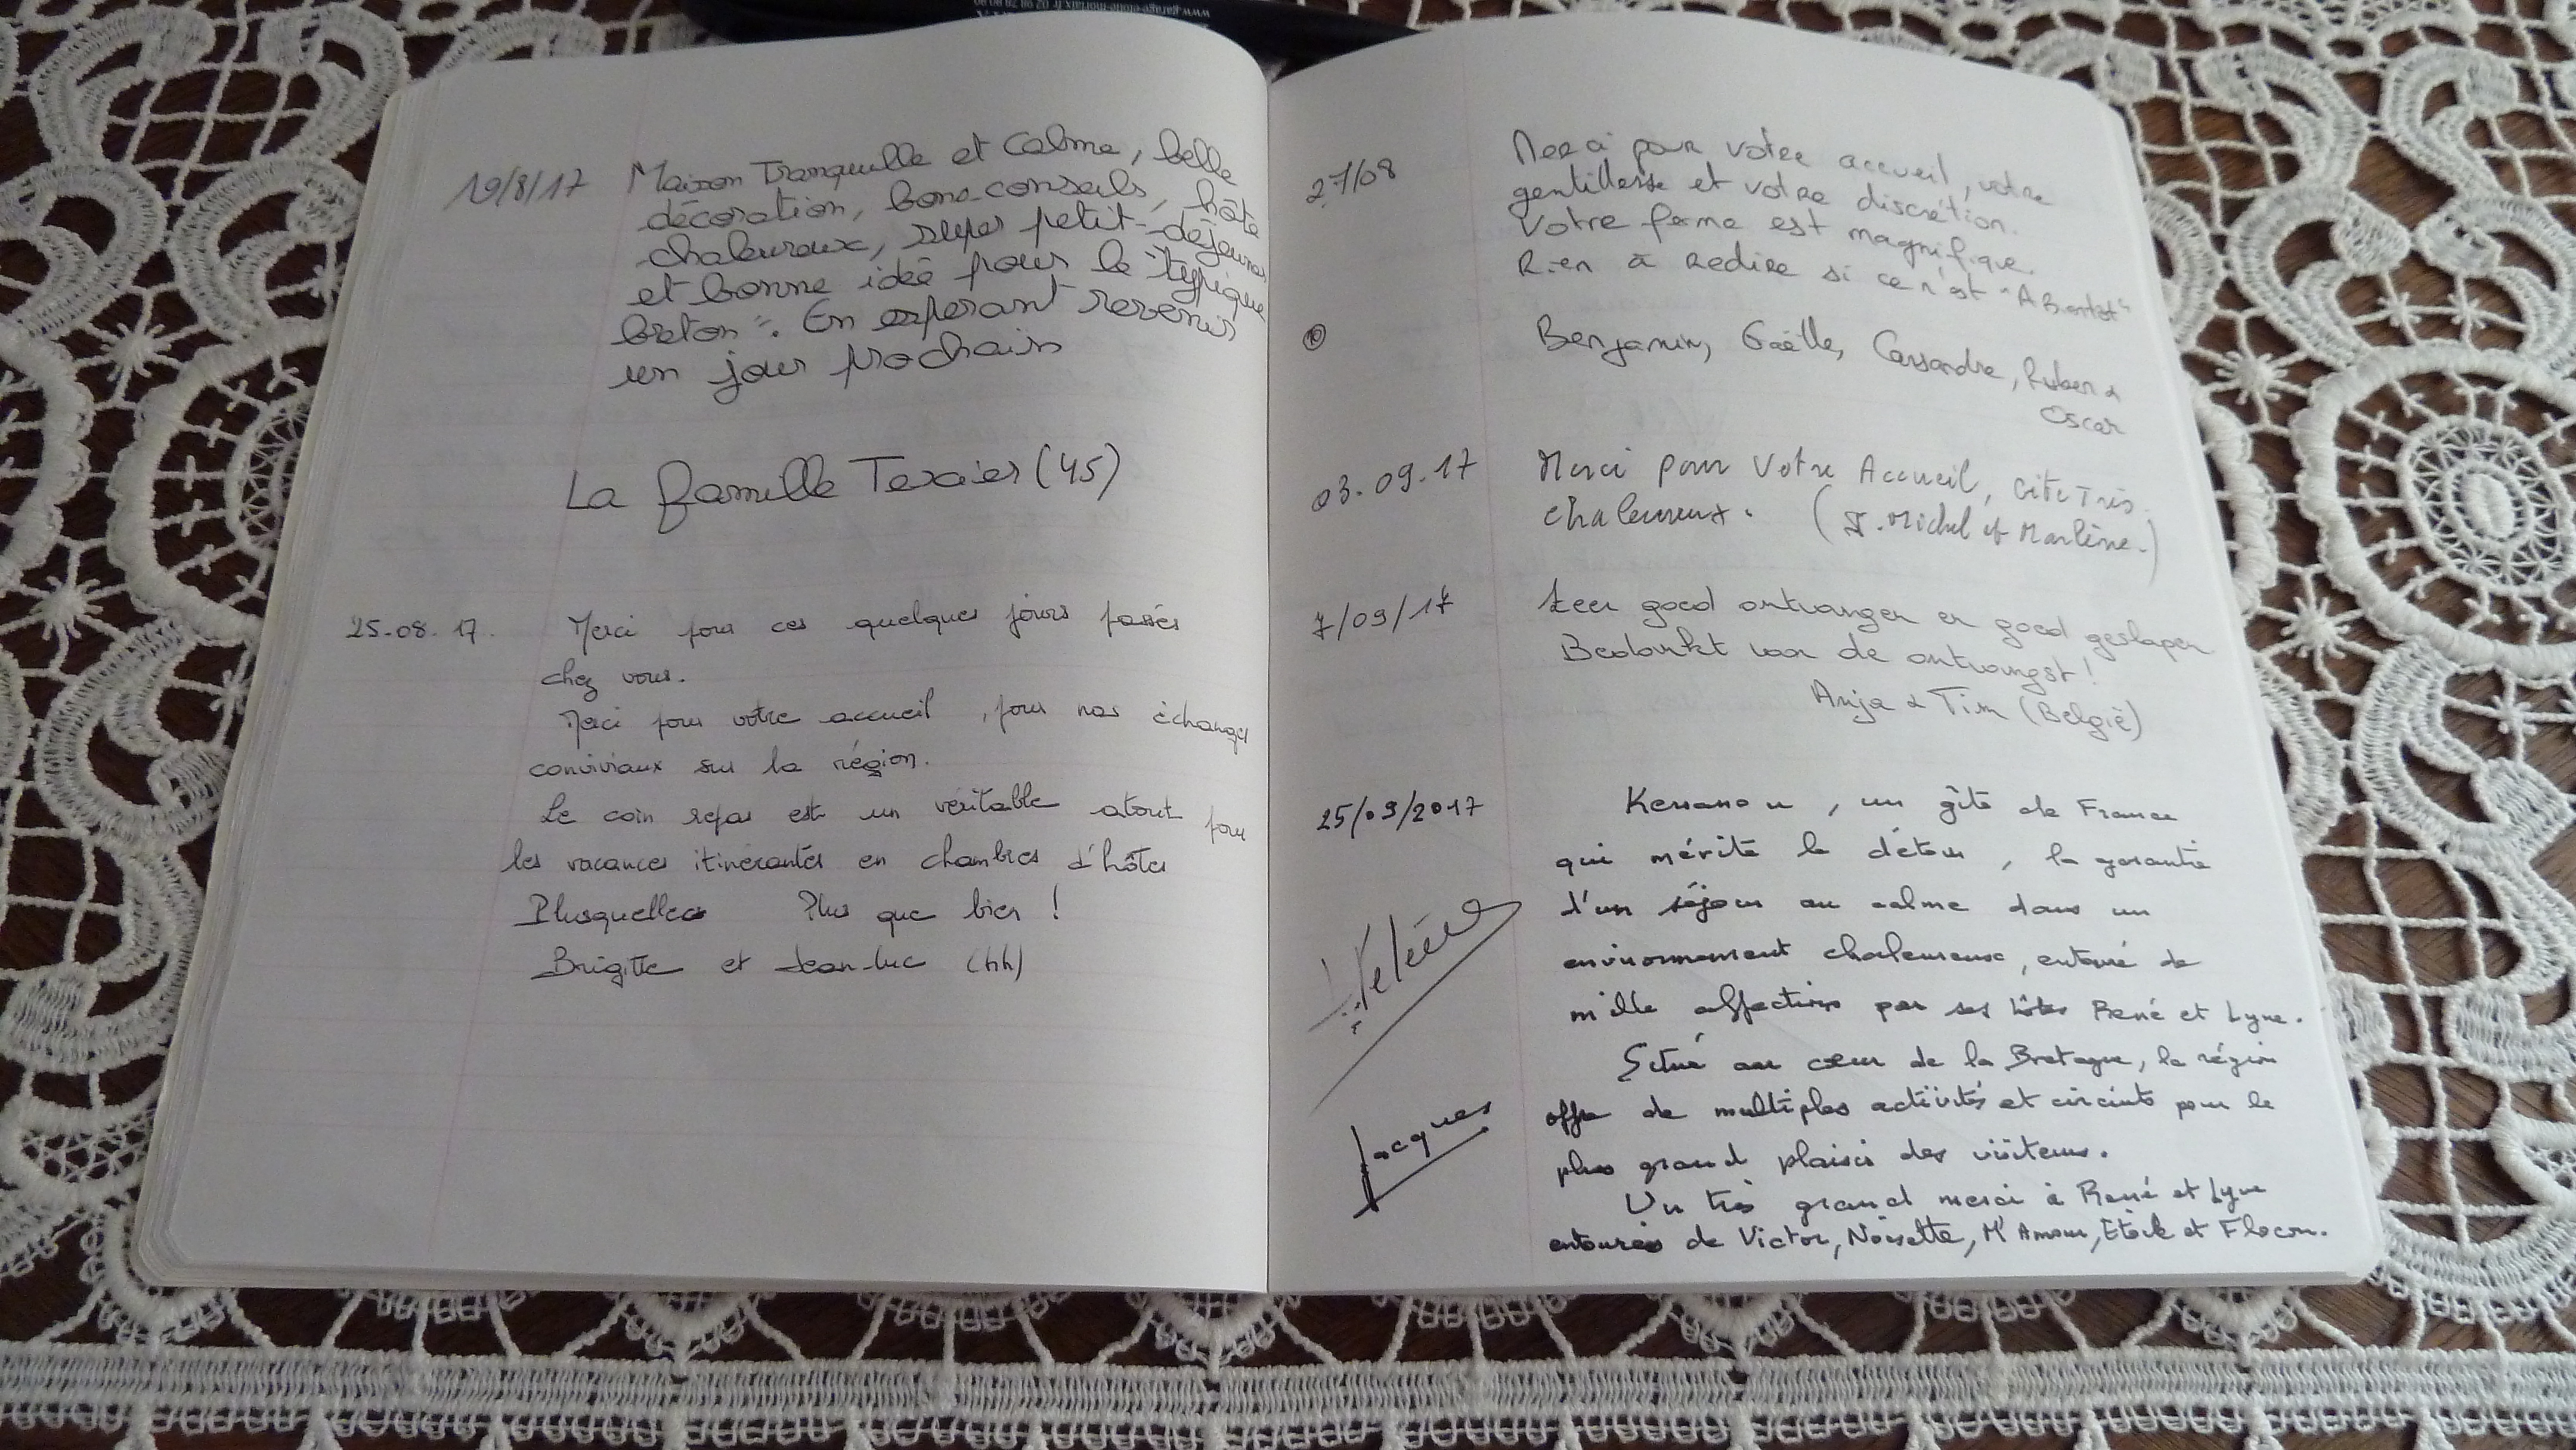 www.garage-etoile-morlaix.fr 02 98
19/8/17 Maison Tranquille et Calme, belle
décoration, bons conseils, hôte
chaleureux, super petit-déjeuner
et bonne idée pour le "typique
breton". En esperant revenir
un jour prochain
La famille Texier (45)
25-08-17. Merci pour ces quelques jours passés
chez vous.
Merci pour votre accueil, pour nos échanges
conviviaux sur la région.
Le coin repas est un véritable atout pour
les vacances itinérantes en chambres d'hôtes
Plusquellec Plus que bien !
Brigitte et Jean-Luc (44)
27/08 Merci pour votre accueil, votre
gentillesse et votre discrétion.
Votre ferme est magnifique.
Rien à redire si ce n'est "A Bientôt"
Benjamin, Gaëlle, Cassandre, Ruben &
Oscar
03.09.17 Merci pour Votre Accueil, Gite Très
chaleureux. (J. Michel et Marlène.)
7/09/17 Zeer goed ontvangen en goed geslapen
Bedankt voor de ontvangst !
Anja & Tim (België)
25/09/2017 , un gîte de France
qui mérite le détour, la garantie
d'un séjour au calme dans un
environnement chaleureux, entouré de
mille affections par ses hôtes René et Lyne.
Situé au cœur de la Bretagne, la région
offre de multiples activités et circuits pour le
plus grand plaisir des visiteurs.
Jacques
Un très grand merci à René et Lyne
entourés de Victor, Noisette, M'Amour, Etoile et Flocon.